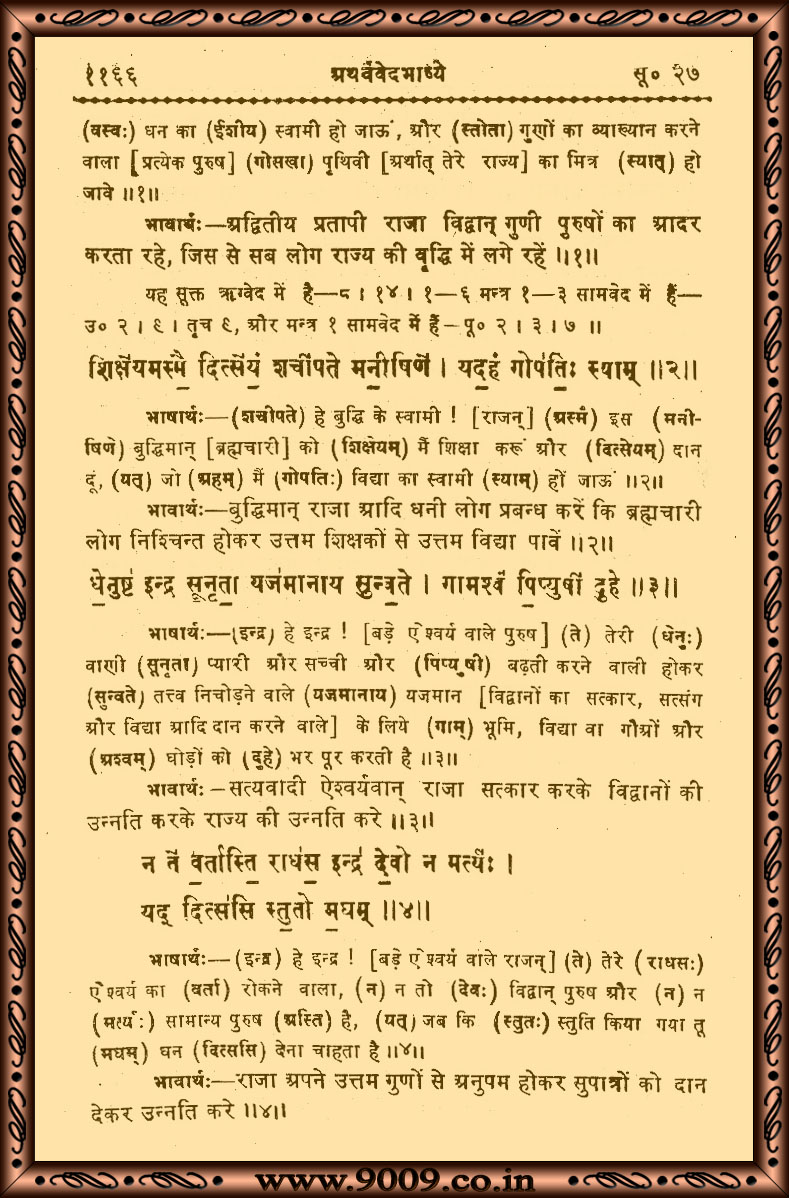 ११६६ अथर्ववेदभाष्ये सू० २७
(वस्वः) धन का (ईशीय) स्वामी हो जाऊं, और (स्तोता) गुणों का व्याख्यान करने
वाला [प्रत्येक पुरुष] (गोसखा) पृथिवी [अर्थात् तेरे राज्य] का मित्र (स्यात्) हो
जावे ॥१॥
भावार्थः—अद्वितीय प्रतापी राजा विद्वान् गुणी पुरुषों का आदर
करता रहे, जिस से सब लोग राज्य की वृद्धि में लगे रहें ॥१॥
यह सूक्त ऋग्वेद में है—८ । १४ । १—६ मन्त्र १—३ सामवेद में हैं—
उ० २ । ९ । तृच ९, और मन्त्र १ सामवेद में है—पू० २ । ३ । ७ ॥
शिक्षे॑यमस्मै॒ दित्से॑यं॒ शची॑पते मनी॒षिणे॑ । यद॒हं गोप॑तिः॒ स्याम् ॥२॥
भाषार्थः—(शचीपते) हे बुद्धि के स्वामी ! [राजन्] (अस्मै) इस (मनी-
षिणे) बुद्धिमान् [ब्रह्मचारी] को (शिक्षेयम्) मैं शिक्षा करूं और (दित्सेयम्) दान
दूं, (यत्) जो (अहम्) मैं (गोपतिः) विद्या का स्वामी (स्याम्) हों जाऊं ॥२॥
भावार्थः—बुद्धिमान् राजा आदि धनी लोग प्रबन्ध करें कि ब्रह्मचारी
लोग निश्चिन्त होकर उत्तम शिक्षकों से उत्तम विद्या पावें ॥२॥
धे॒नुष्ट॑ इन्द्र सू॒नृता॒ यज॑मानाय सुन्व॒ते । गामश्वं॑ पि॒प्युषी॑ दुहे ॥३॥
भाषार्थः—(इन्द्र) हे इन्द्र ! [बड़े ऐश्वर्य वाले पुरुष] (ते) तेरी (धेनुः)
वाणी (सूनृता) प्यारी और सच्ची और (पिप्युषी) बढ़ती करने वाली होकर
(सुन्वते) तत्त्व निचोड़ने वाले (यजमानाय) यजमान [विद्वानों का सत्कार, सत्संग
और विद्या आदि दान करने वाले] के लिये (गाम्) भूमि, विद्या वा गौओं और
(अश्वम्) घोड़ों को (दुहे) भर पूर करती है ॥३॥
भावार्थः—सत्यवादी ऐश्वर्यवान् राजा सत्कार करके विद्वानों की
उन्नति करके राज्य की उन्नति करे ॥३॥
न ते॑ व॒र्तास्ति॒ राध॑स॒ इन्द्र॑ दे॒वो न मर्त्यः॑ ।
यद् दित्स॑सि स्तु॒तो म॒घम् ॥४॥
भाषार्थः—(इन्द्र) हे इन्द्र ! [बड़े ऐश्वर्य वाले राजन्] (ते) तेरे (राधसः)
ऐश्वर्य का (वर्ता) रोकने वाला, (न) न तो (देवः) विद्वान् पुरुष और (न) न
(मर्त्यः) सामान्य पुरुष (अस्ति) है, (यत्) जब कि (स्तुतः) स्तुति किया गया तू
(मघम्) धन (दित्ससि) देना चाहता है ॥४॥
भावार्थः—राजा अपने उत्तम गुणों से अनुपम होकर सुपात्रों को दान
देकर उन्नति करे ॥४॥
www.9009.co.in